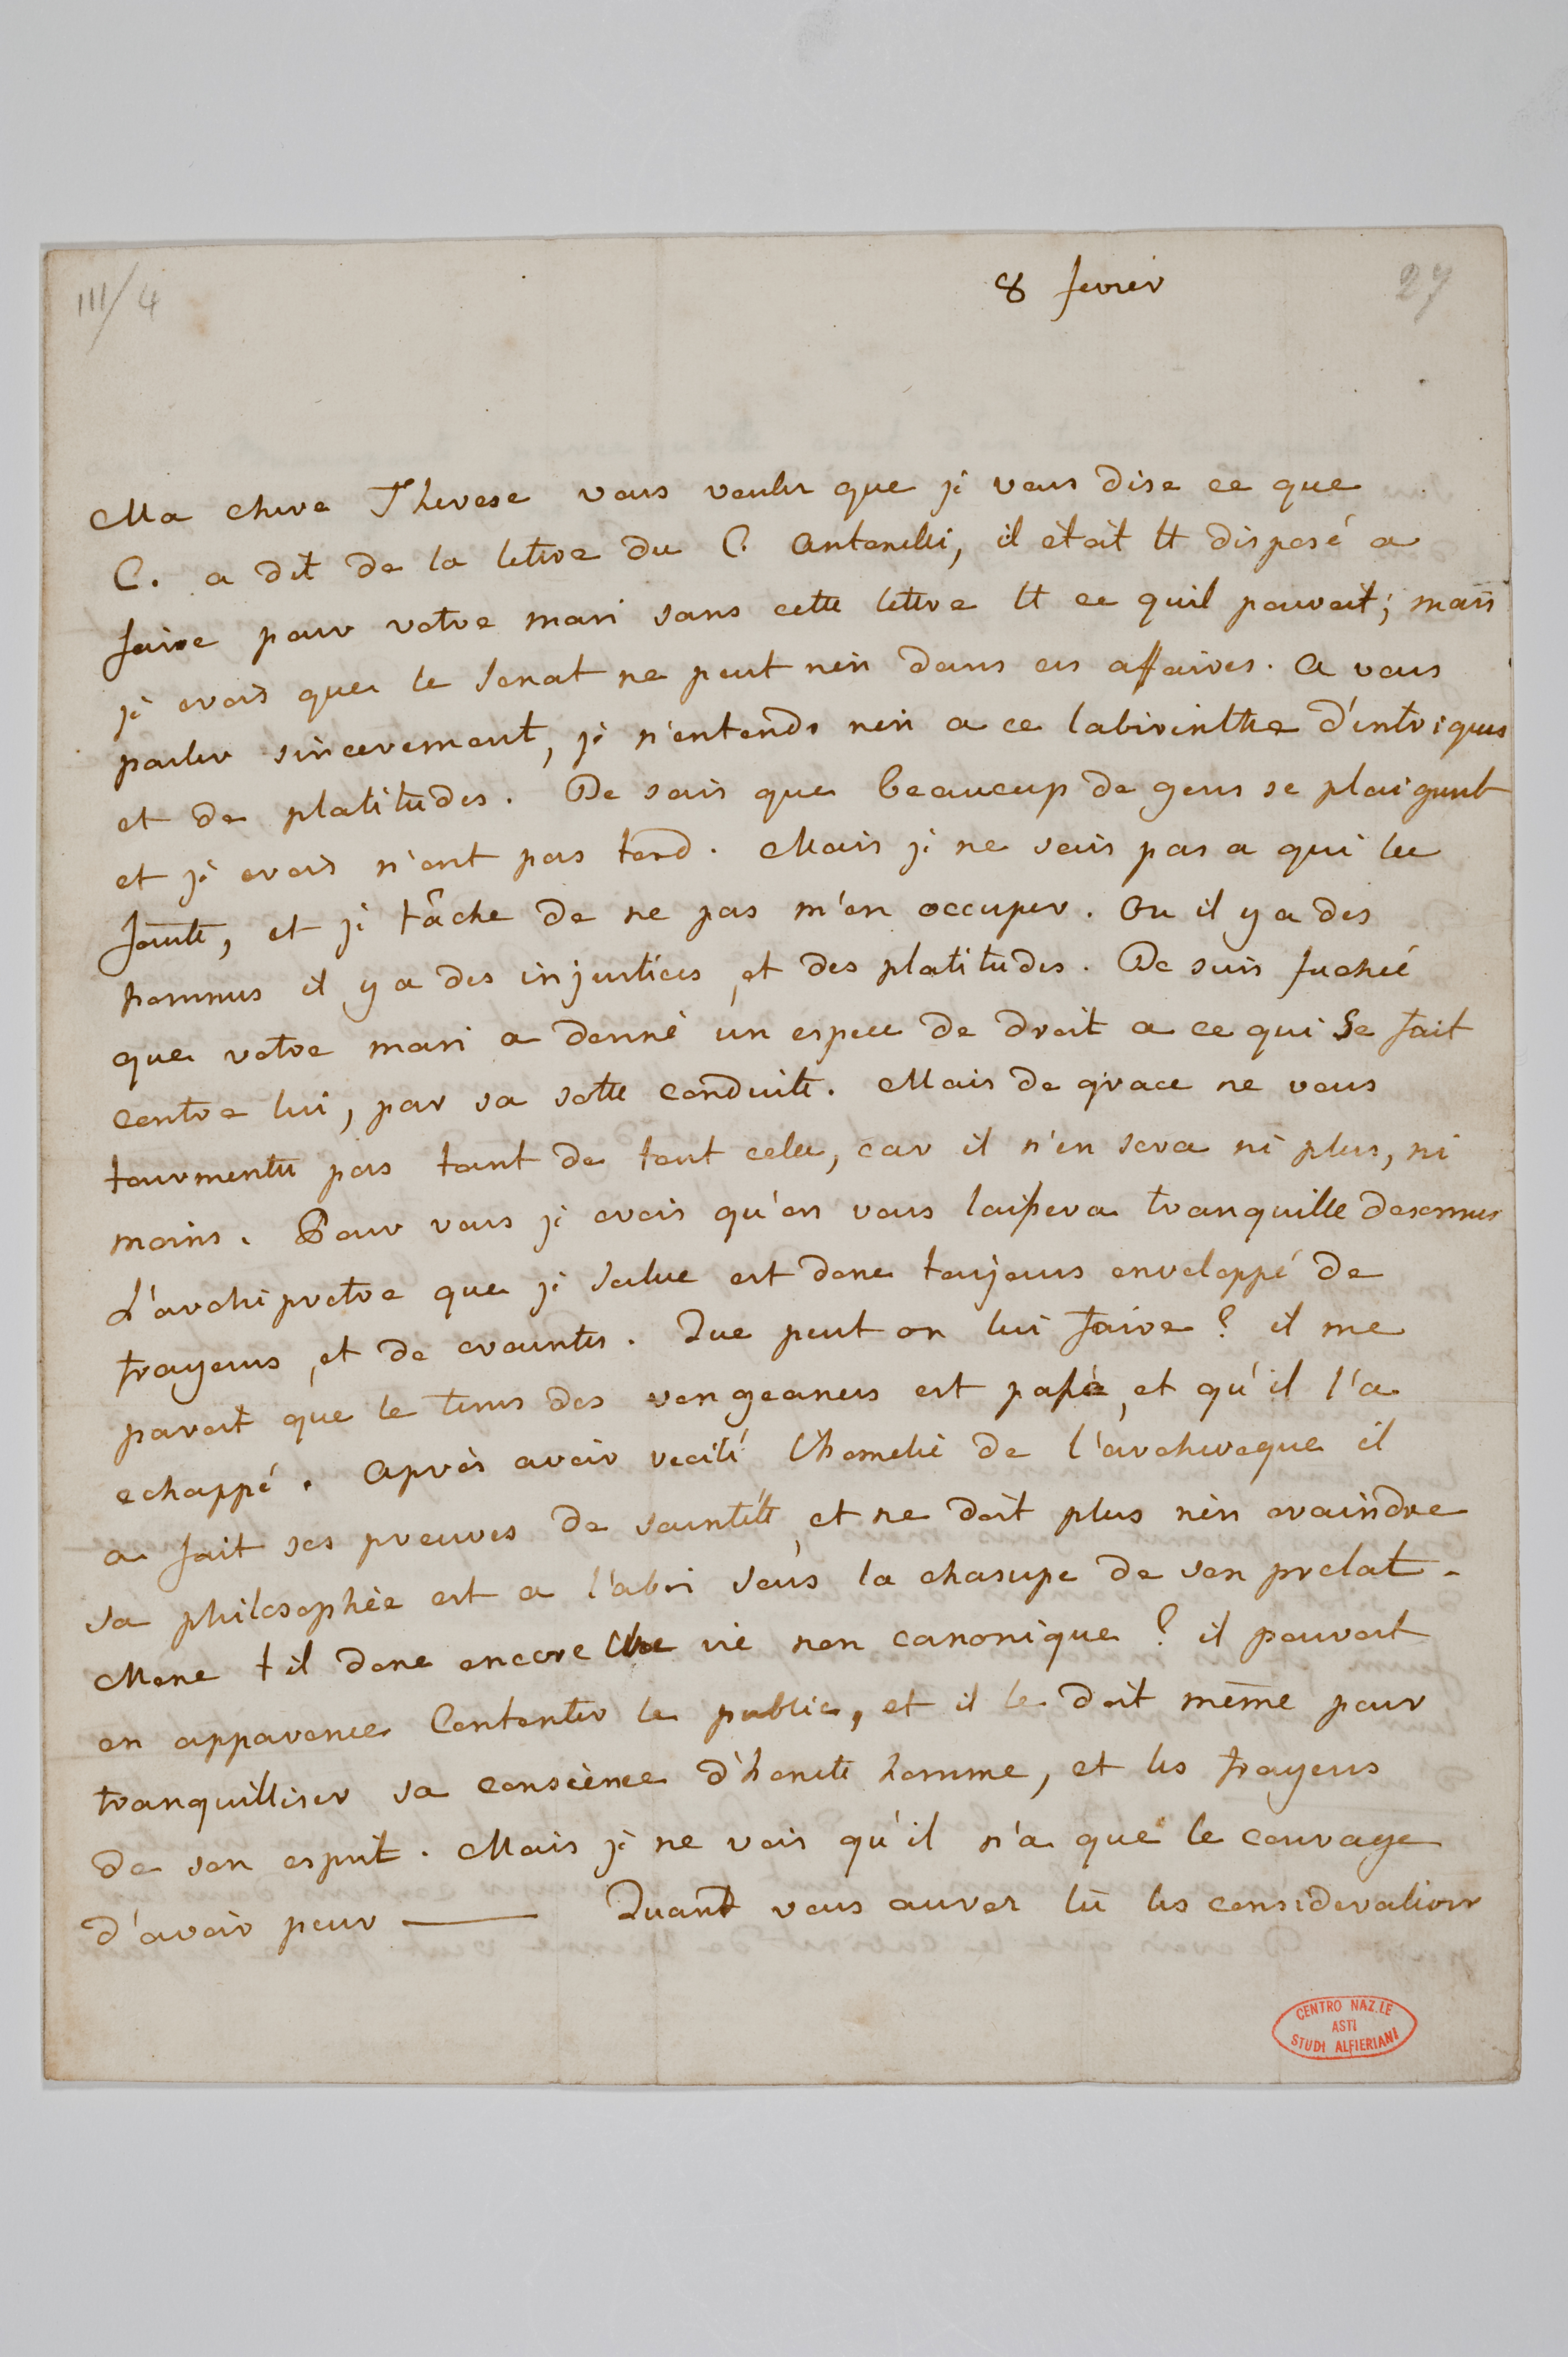 III/4
8 fevrier
27
Ma chere Therese vous voulez que je vous dise ce que
C. a dit de la lettre du C. Antonelli, il etoit tt disposé a
faire pour votre mari sans cette lettre tt ce quil pouvoit; mais
je crois que le Senat ne peut rien dans ces affaires. A vous
parler sincerement, je n'entends rien a ce labirinthe d'intrigues
et de platitudes. Je sais que beaucoup de gens se plaignent
et je crois n'ont pas tord. Mais je ne sais pas a qui la
faute, et je tâche de ne pas m'en occuper. Ou il y a des
hommes il y a des injustices, et des platitudes. Je suis fachée
que votre mari a donné un espece de droit a ce qui se fait
contre lui, par sa sotte conduite. Mais de grace ne vous
tourmentez pas tant de tout cela, car il n'en sera ni plus, ni
moins. Pour vous je crois qu'on vous laissera tranquille
L'archipretre que je salue est donc toujours enveloppé de
frayeurs, et de craintes. Que peut on lui faire? il me
paroit que le tems des vengeances est passé, et qu'il l'a
echappé. Après avoir recité l'homelie de l'archeveque il
a fait ses preuves de sainteté, et ne doit plus rien craindre
sa philosophie est a l'abri sous la chasupe de son prelat.
Mene t il donc encore Une vie non canonique? il pouvoit
en apparence Contenter le public, et il le doit même pour
tranquilliser sa conscience d'honete homme, et les frayeurs
de son esprit. Mais je ne vois qu'il n'a que le courage
d'avoir peur —— Quant vous aurez lû les considerations
CENTRO NAZ.LE
ASTI
STUDI ALFIERIANI